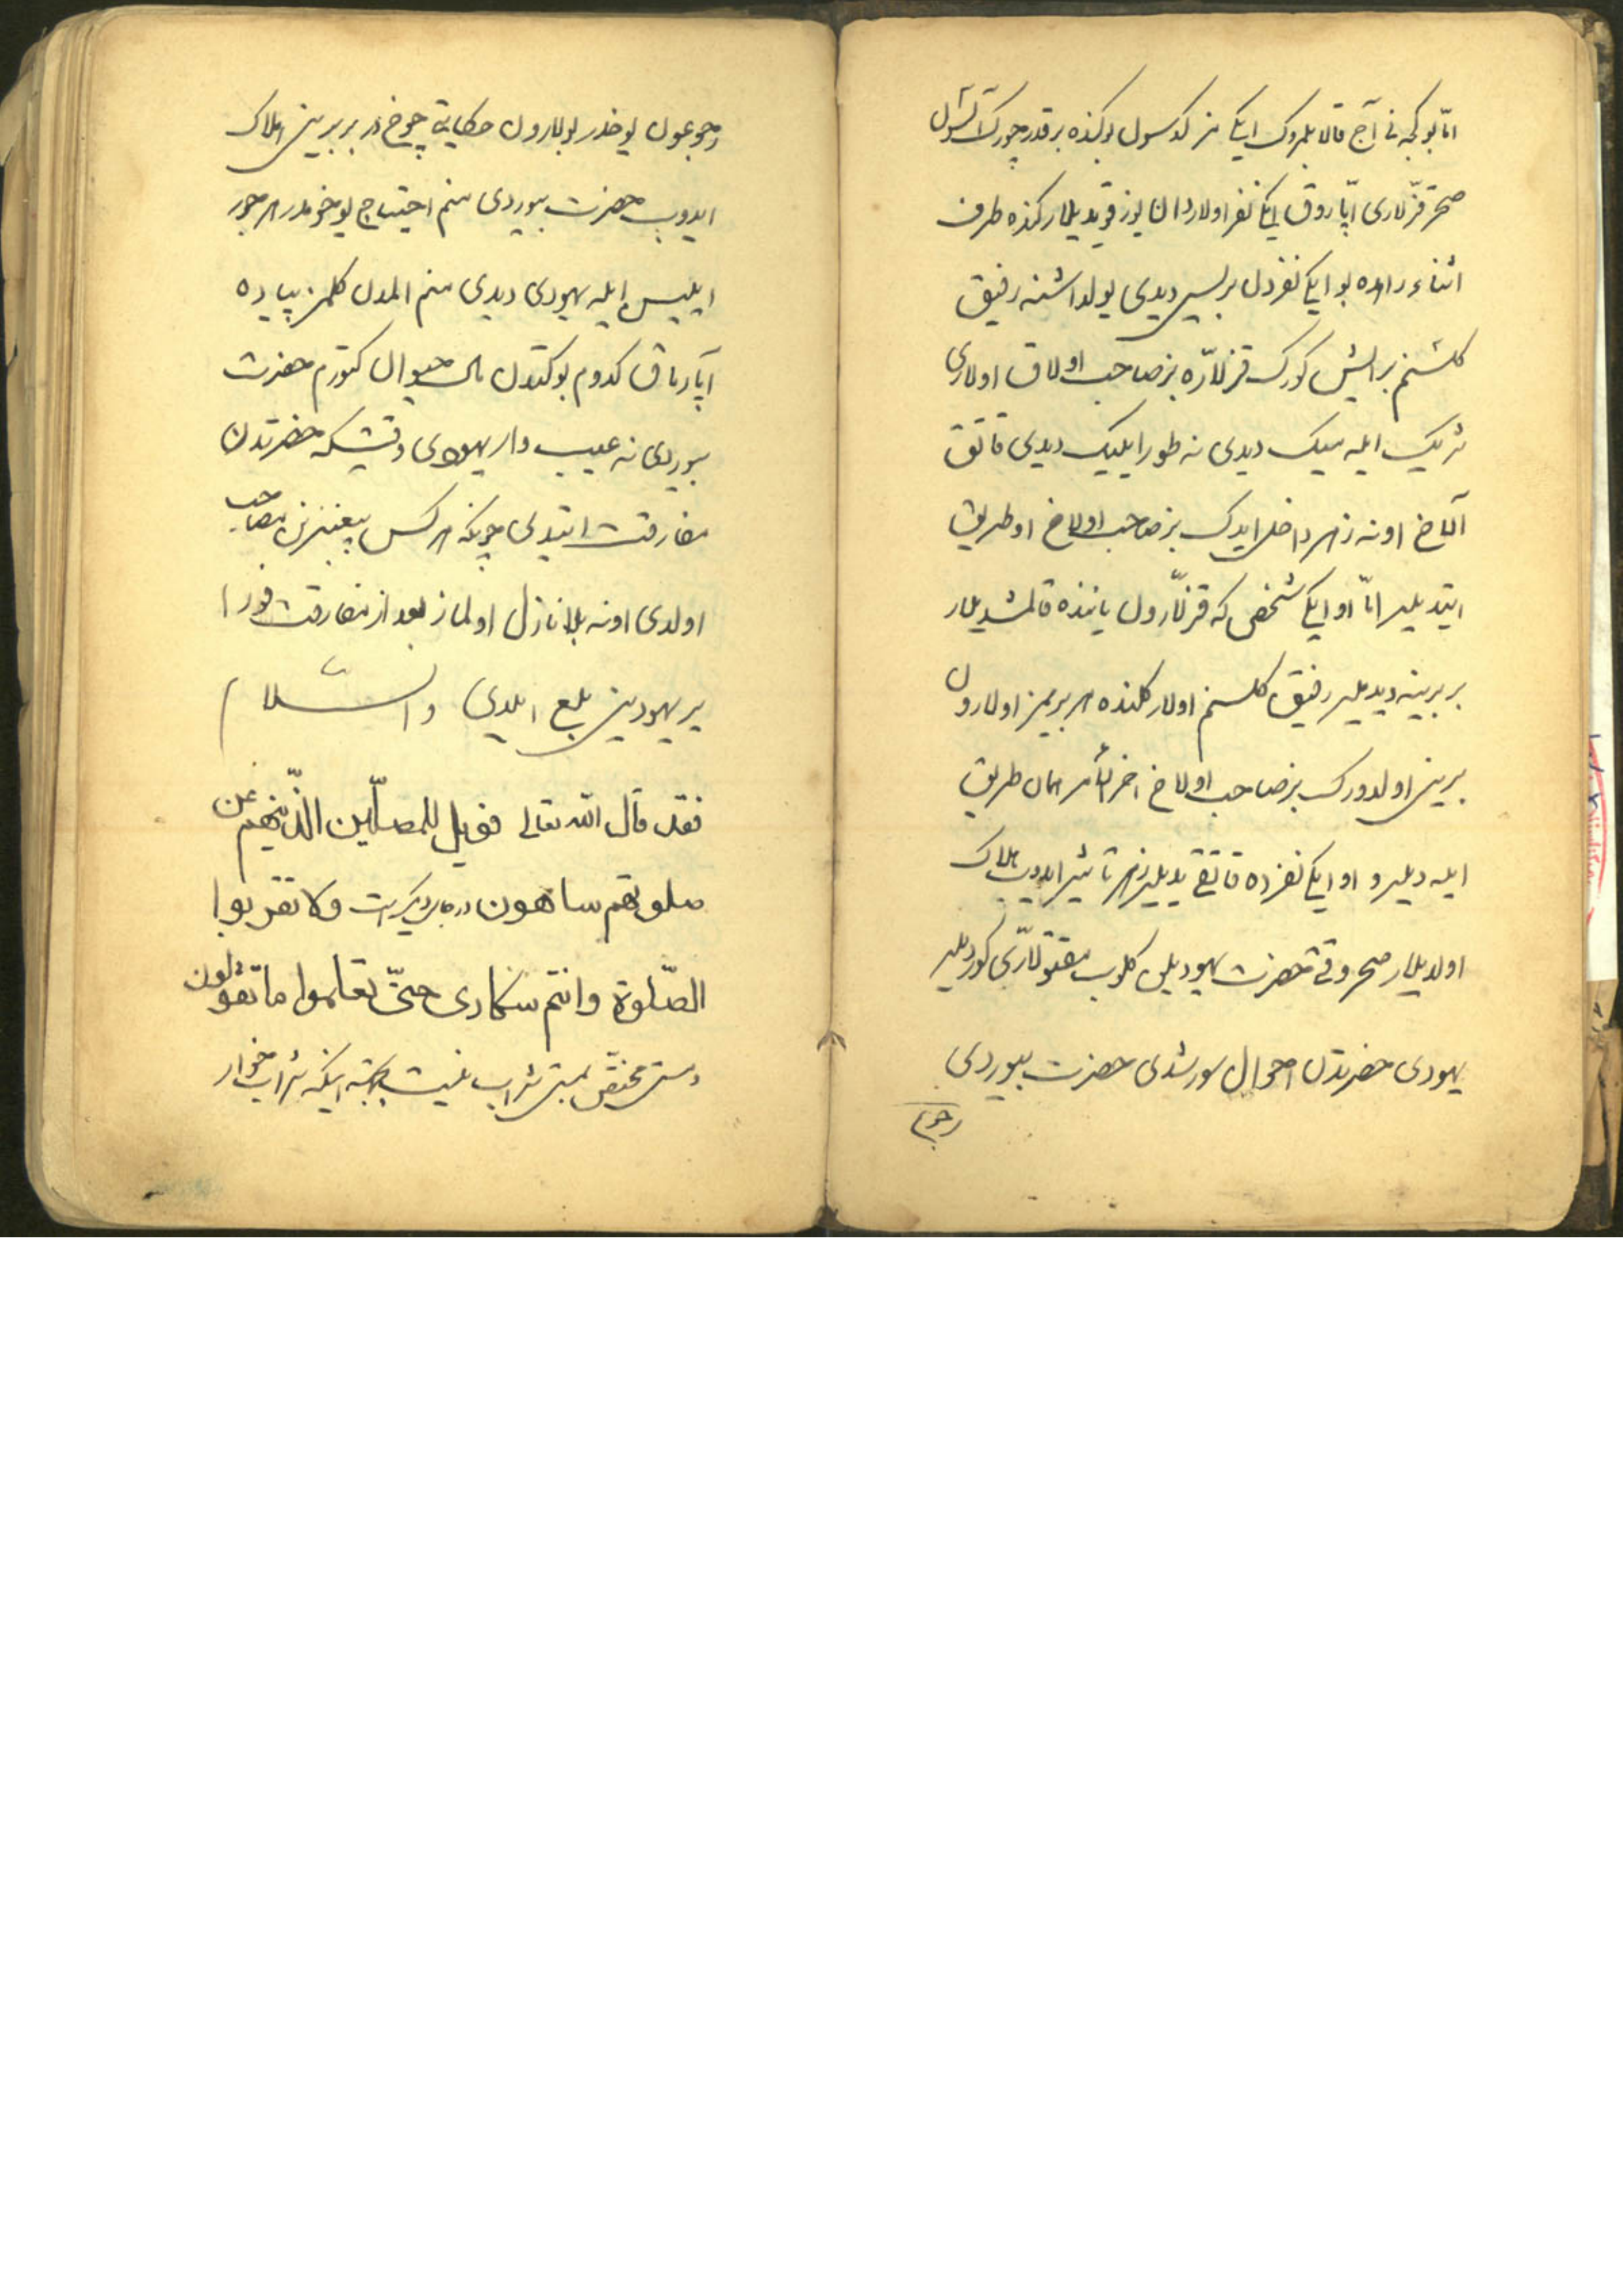 امّا بو کجه نی آج قالا بلمروک ایکی نفر کدسون بو کنده بر قدر چورک آلسون
صحر قزللاری اپاروق ایکی نفر اولاردان یوز قویدیلار کنده طرف
اثناء راهده بو ایکی نفردن بریسی دیدی یولداشنه رفیق
کلشنم بر ایش کورک قزللاره بز صاحب اولاق اولاری
شریک ایله میک دیدی نه طور ایلیک دیدی قاتق
آلاخ اونه زهر داخل ایدک بز صاحب اولاخ او طریق
ایتدیلر امّا او ایکی شخص که قزللارون یاننده قالمشدیلار
بر برینه دیدیلر رفیق کلسنم اولار کلنده هر بریمز اولارون
برین اولدورک بز صاحب اولاخ اخر الأمر همان طریق
ایله دیلر و او ایکی نفرده قاتقی یدیلر زهر تاثیر ایدوب هلاک
اولدیلار صحر وقتی حضرت یهودیلن کلوب مقتوللاری کوردیلر
یهودی حضرتدن احوال سورشدی حضرت بیوردی
رجوع
رجوعون یوخدر بولارون حکایتی چوخ در بر برین هلاک
ایدوب حضرت بیوردی منم احتیاج یوخومدر هر جور
ایلیس ایله یهودی دیدی منم المدن کلمز پیاده
آپارماق کدوم بو کتدن مال حیوان کتورم حضرت
بیوردی نه عیب وار یهودی وقتیکه حضرتدن
مفارقت ایتدی چونکه هر کس پیغمبرنن مصاحب
اولدی اونه بلا نازل اولماز بعد از مفارقت فورا
یر یهودینی بلع ایلدی والسّلام
فقد قال الله تعالی فویل للمصلّین الّذینهم عن
صلوتهم ساهون در جای دیگر است ولا تقربوا
الصّلوة وانتم سکاری حتّی تعلموا ما تقولون
مستی مختص بمستی شراب نیست بجهته اینکه شراب خوار